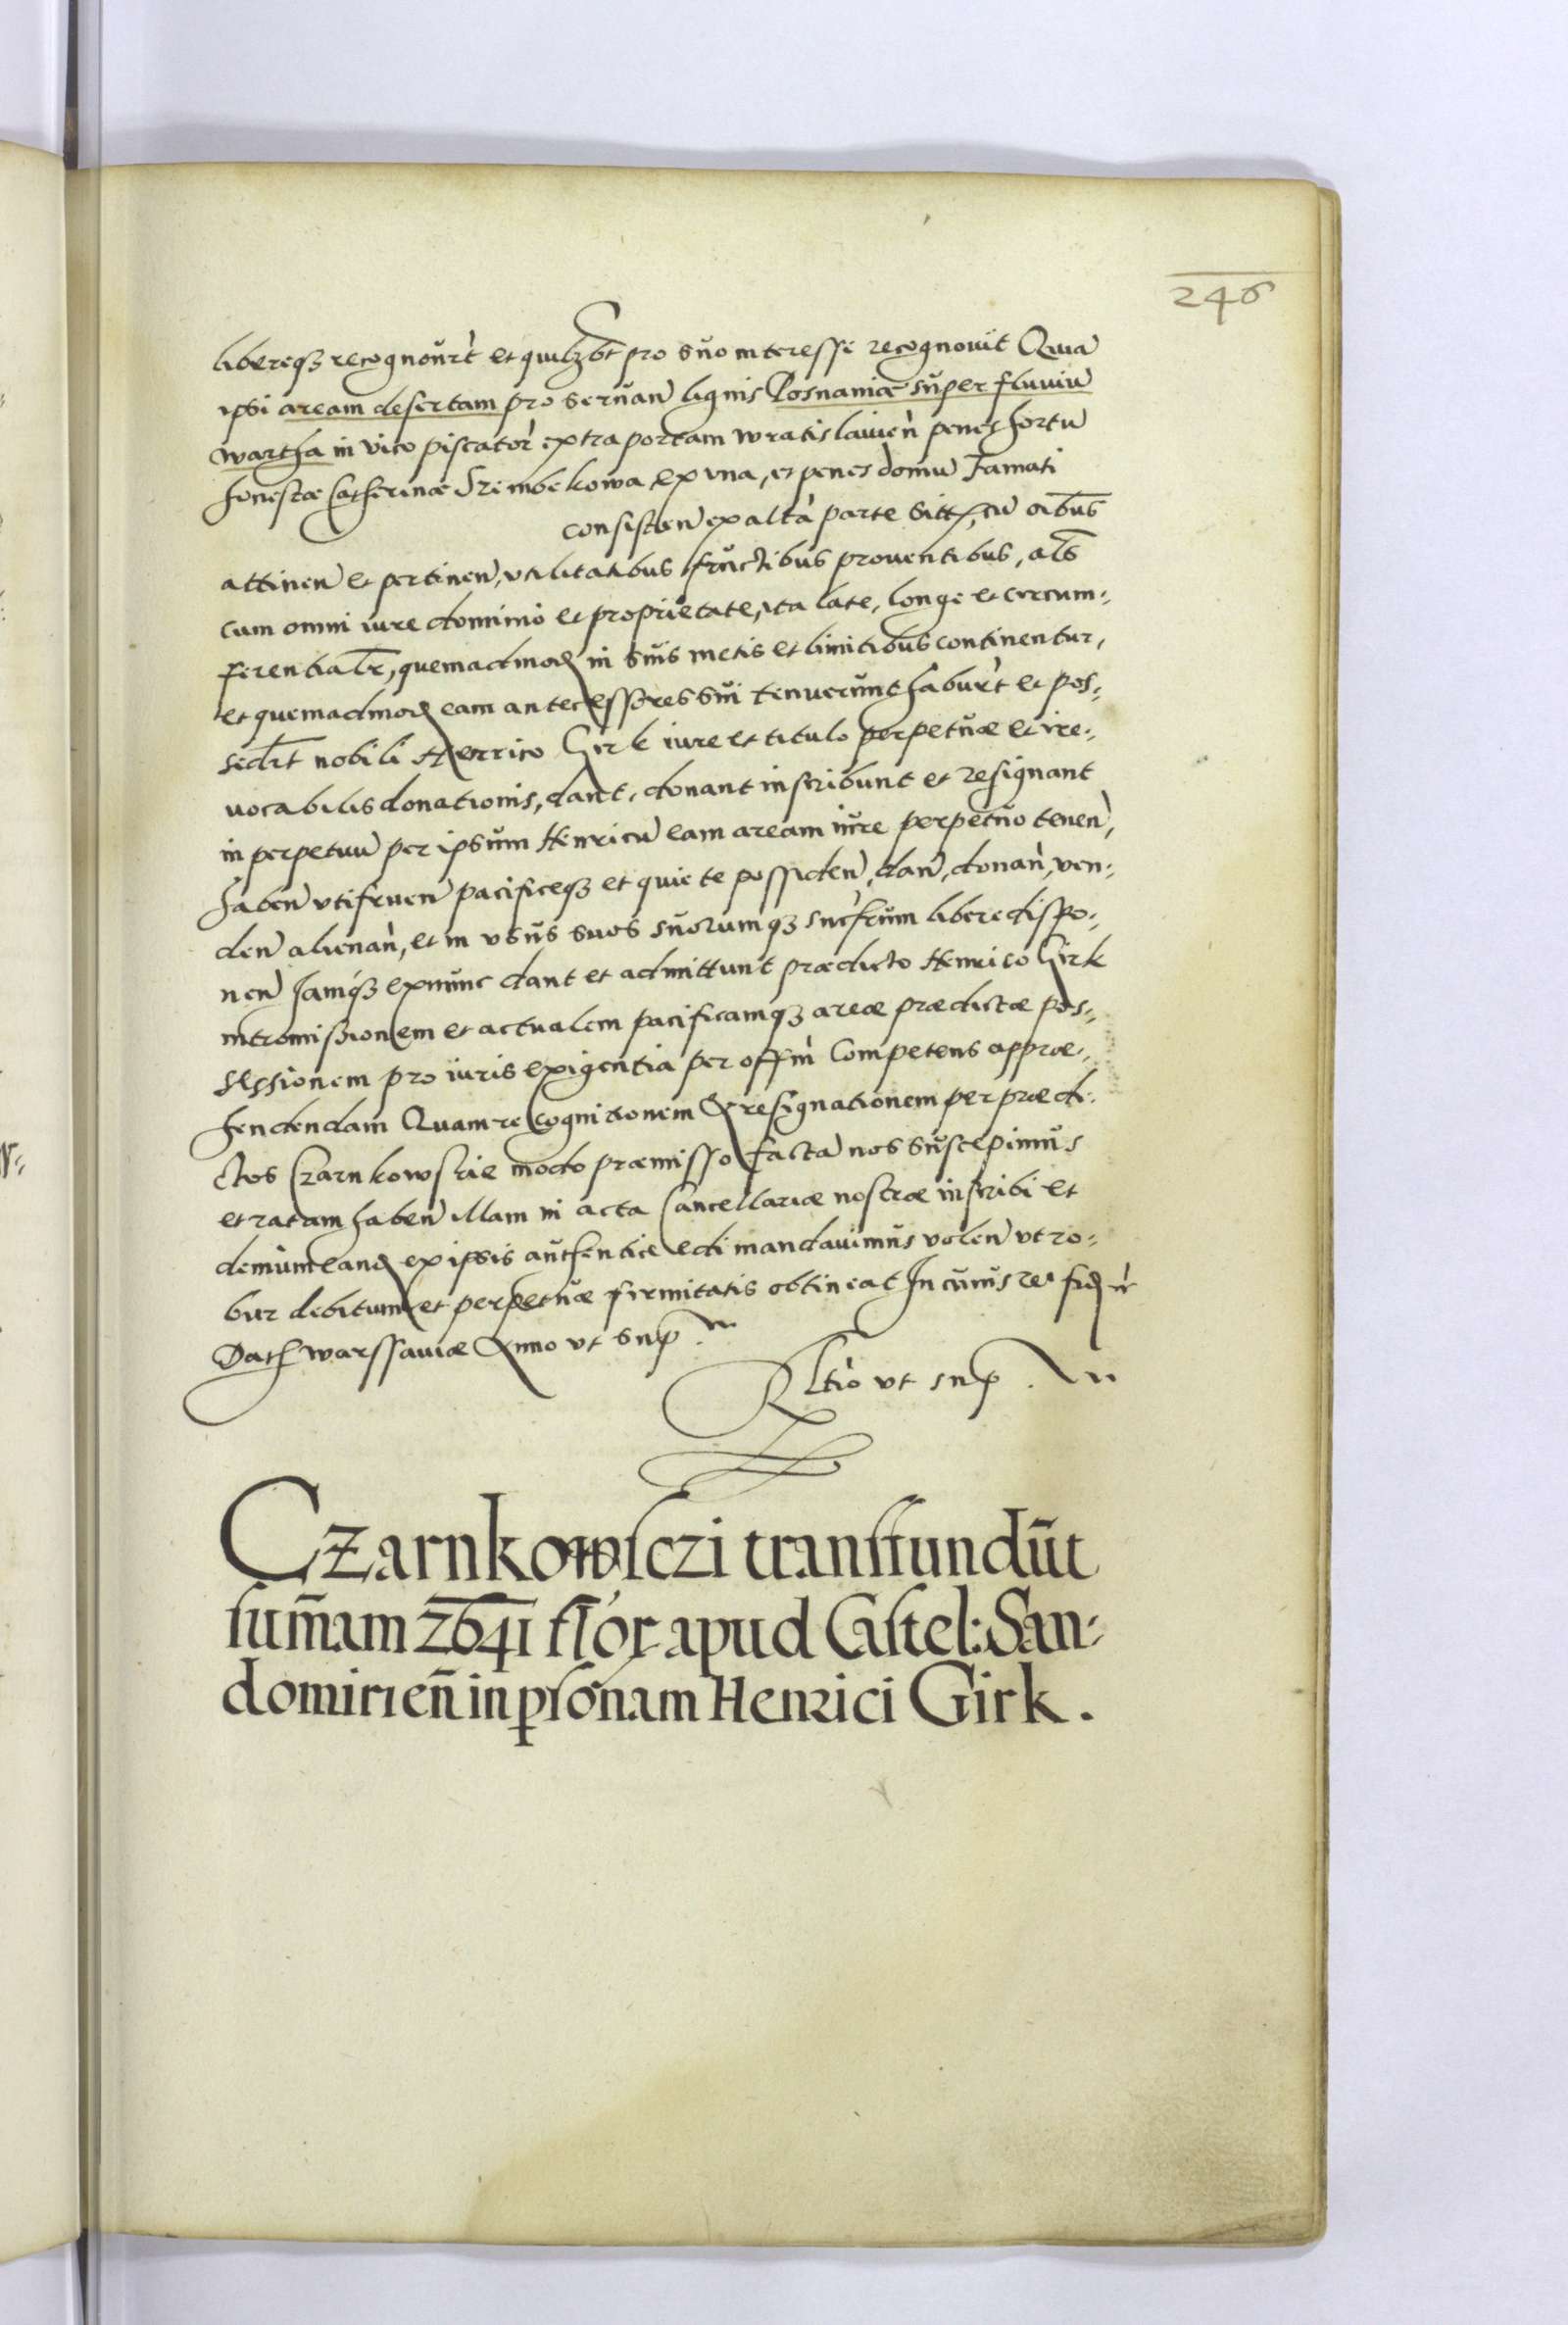 246
libereq₃ recognoūrt̀ et quil₃bt̄ pro suo interesse recognovit Quia
ipsi aream desertam pro servan̄ lignis Posnaniæ super fluviū
wartha in vico piscator̀ extra portam wratislauien̄ penes hortū
honestæ Catherinæ Szembekowa ex vna, et penes domū Famati
consisten̄ ex altā parte sitt, cū oībus
attinen̄ et pertinen̄, vtilitatibus fructibus proventibus, als̄
cum omni iure dominio et proprietate, ita late, longe et circum-
ferentialr̄, quemadmod in suis metis et limitibus continentur,
et quemadmod eam antecessores sui tenuerunt haburt̀ et pos-
sedrt̄ nobili Henrico Girk iure et titulo perpetuæ et irre-
vocabilis donationis, dant, donant inscribunt et resignant
in perpetuū per ipsum Henricū eam aream iure perpetuo tenen̄,
haben̄ vtifruen̄ pacificeq₃ et quiete possiden̄, dan̄, donan̄, ven-
den̄ alienan̄, et in vsus suos suorumq₃ suc̄frum libere dispo-
nen̄ Iamq₃ exnunc dant et admittunt prædicto Henrico Girk
intromissionem et actualem pacificamq₃ areæ prædictæ pos-
sessionem pro iuris exigentia per off̄m Competens appræ-
hendendam Quam recognitionem & resignationem per prædi-
ctos Czarnkowskie modo præmisso factā nos suscepimus
et ratam haben̄ illam in acta Cancellariæ nostræ inscribi et
demum eand ex ipsis authentice edi mandavimus volen̄ vt ro-
bur debitum et perpetuæ firmitatis obtineat In cuius rei fid ꝛc
Dat warssaviæ Anno vt sup.
Rltio vt sup.
Czarnkowsczi transfundūt
sum̄am 2641 flor apud Castel: San-
domirien̄ in psōnam Henrici Girk.